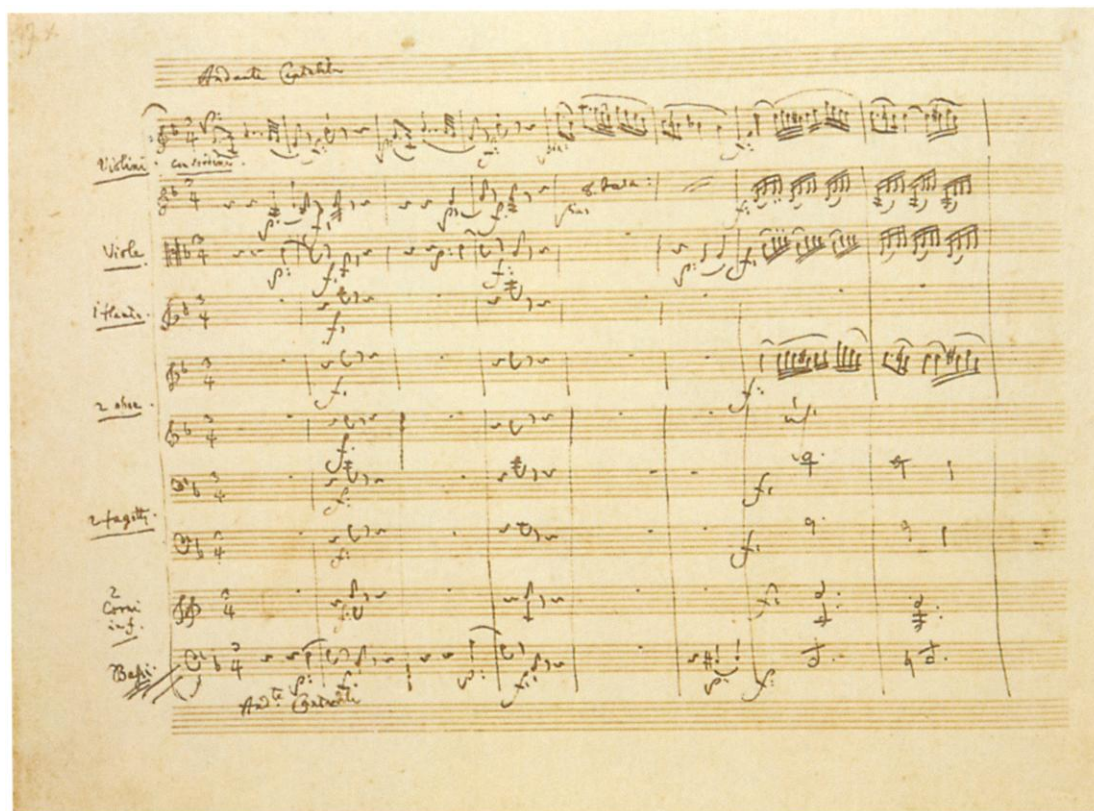 Andante Cantabile
Violini.
con sordini.
Viole.
1 flauto.
2 oboe.
2 fagotti.
2
Corni
in f.
Bassi.
And:te Cantabile